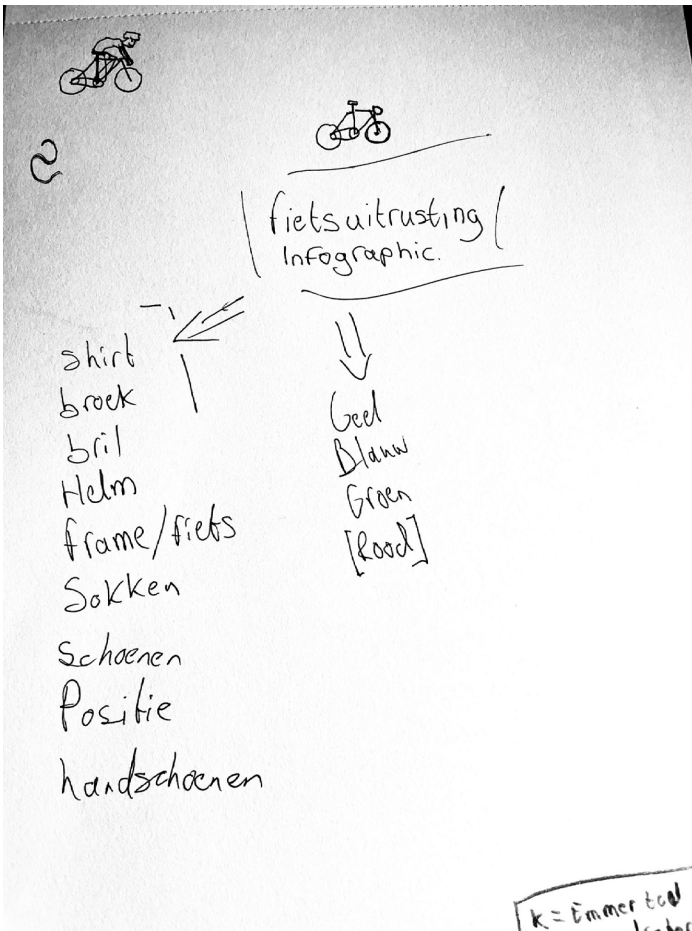 fietsuitrusting
Infographic.
shirt
broek
bril
Helm
frame/fiets
Sokken
Schoenen
Positie
handschoenen
Geel
Blauw
Groen
[Rood]
k = Emmer